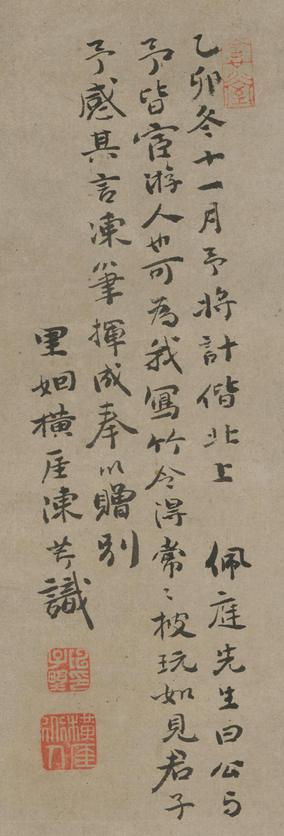 乙卯冬十一月予將計偕北上　佩庭先生曰公與
予皆宦游人也可為我寫竹令得常〻披玩如見君子
予感其言凍筆揮成奉以贈別
里姻橫厓陳芳識